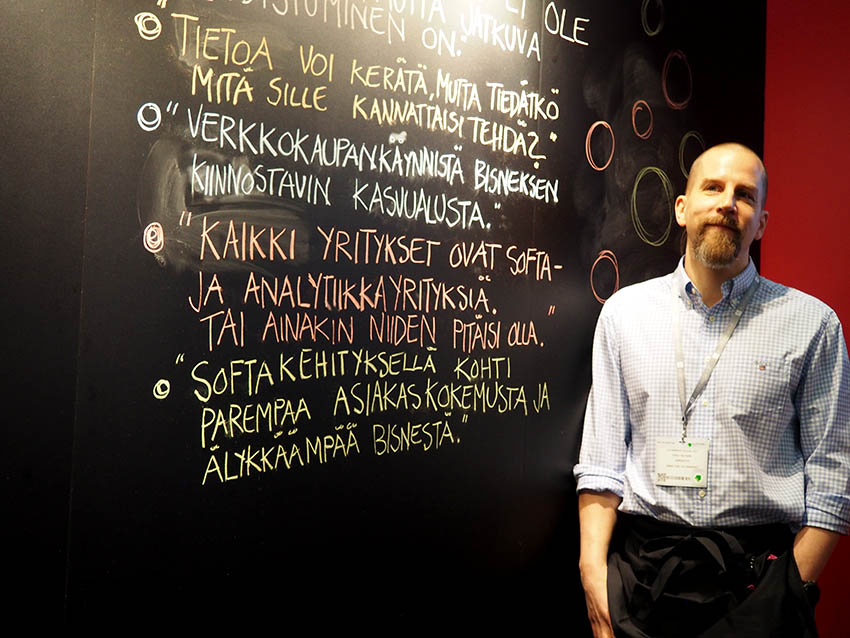 JATKUVA
OLE
MINEN ON."
"TIETOA VOI KERÄTÄ, MUTTA TIEDÄTKÖ
MITÄ SILLE KANNATTAISI TEHDÄ?"
"VERKKOKAUPAN KÄYNNISTÄ BISNEKSEN
KIINNOSTAVIN KASVUALUSTA."
"KAIKKI YRITYKSET OVAT SOFTA-
JA ANALYTIIKKAYRITYKSIÄ.
TAI AINAKIN NIIDEN PITÄISI OLLA."
"SOFTAKEHITYKSELLÄ KOHTI
PAREMPAA ASIAKASKOKEMUSTA JA
ÄLYKKÄÄMPÄÄ BISNESTÄ."